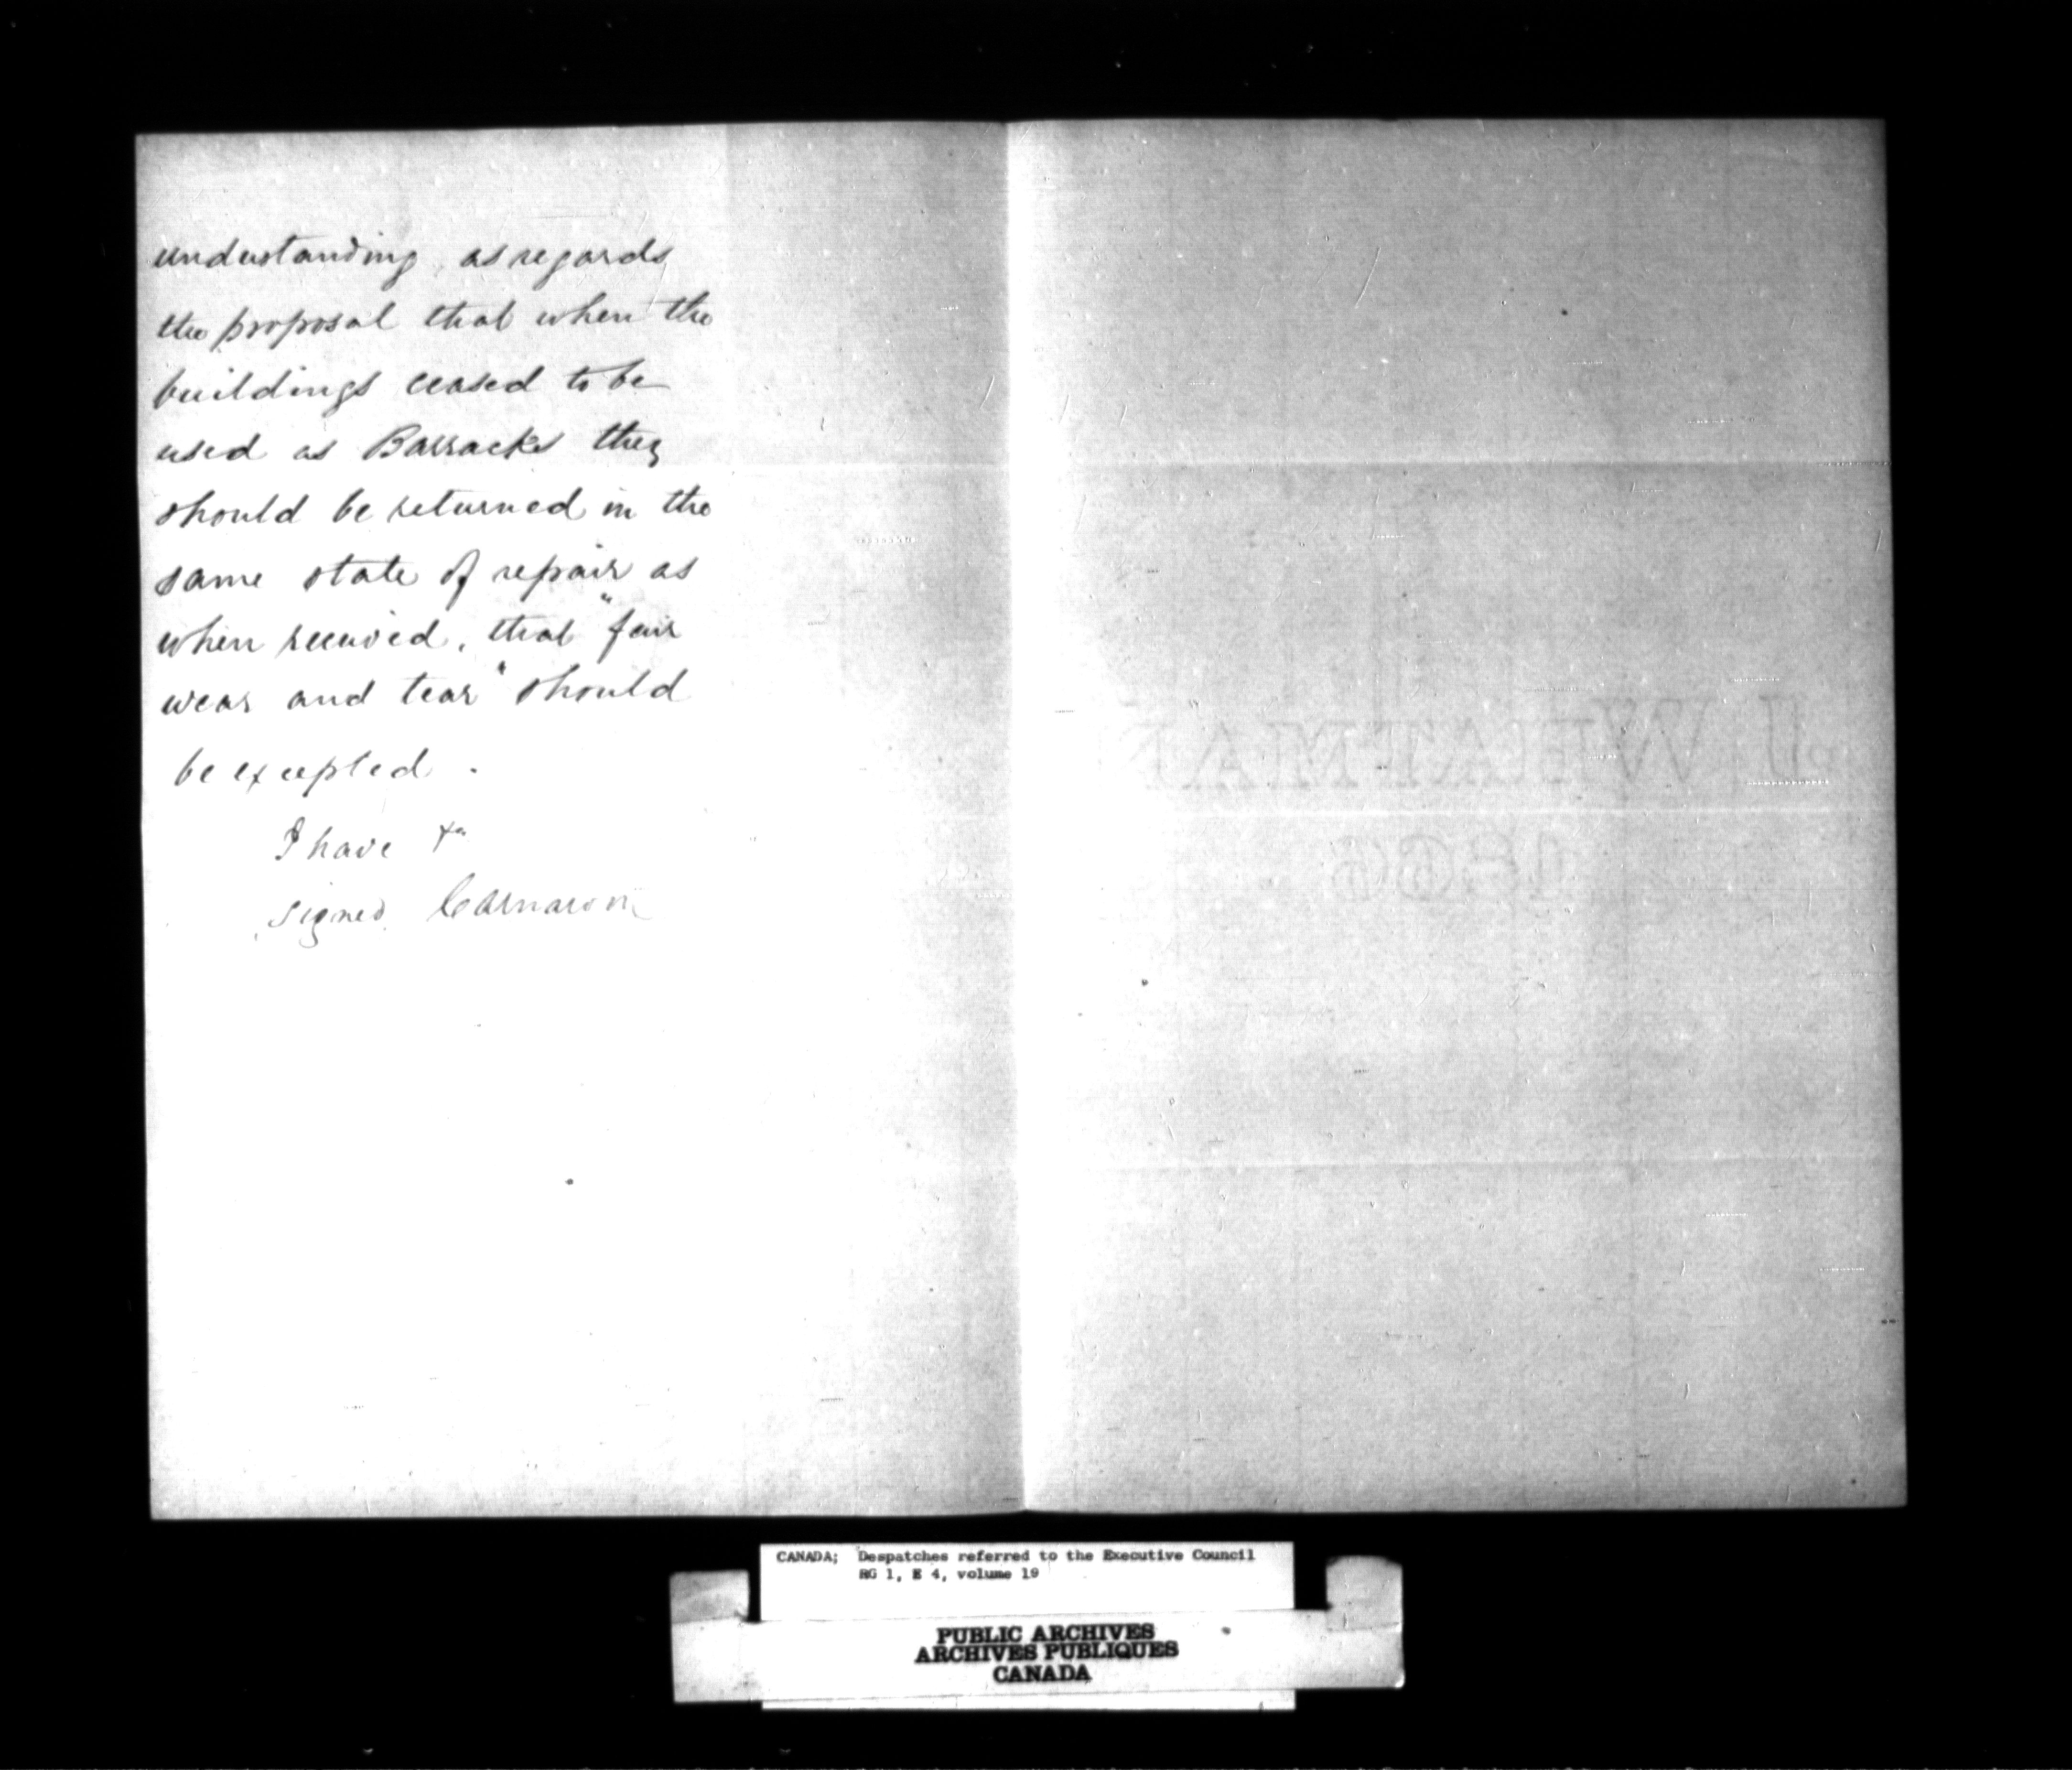 understanding as regards
the proposal that when the
buildings ceased to be
used as Barracks they
should be returned in the
same state of repair as
when received, that "fair
wear and tear" should
be excepted.
I have &c
signed Carnarvon
J WHATMAN
1866
CANADA; Despatches referred to the Executive Council
RG 1, E 4, volume 19
PUBLIC ARCHIVES
ARCHIVES PUBLIQUES
CANADA